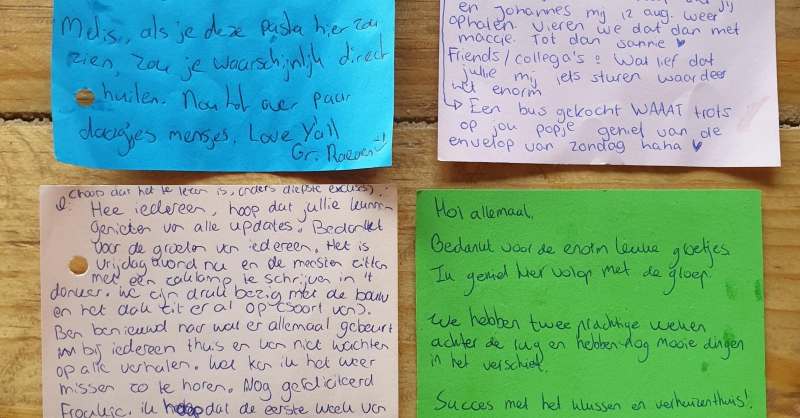 Melis, als je deze pasta hier zou
zien, zou je waarschijnlijk direct
huilen. Nou tot over paar
daagjes mensjes. Love Y'all
Gr. Roeven :)
en Johannes mij 12 aug. weer
ophalen. Vieren we dat dan met
maccie. Tot dan sanne ♥
Friends/collega's: Wat lief dat
jullie mij iets sturen waardeer
het enorm
↳ Een bus gekocht WAAAT trots
op jou popje geniet van de
envelop van zondag haha ♥
(hoop dat het te lezen is, anders diepste excuses).
Hee iedereen, hoop dat jullie kunnen
genieten van alle updates. Bedankt
voor de groeten van iedereen. Het is
vrijdagavond nu en de meesten zitten
met een zaklamp te schrijven in 't
donker. We zijn druk bezig met de bouw
en het dak zit er al op (soort van).
Ben benieuwd naar wat er allemaal gebeurt
bij iedereen thuis en kan niet wachten
op alle verhalen. Wat kan ik het weer
missen zo te horen. Nog gefeliciteerd
ik hoop dat de eerste week van
Hoi allemaal,
Bedankt voor de enorm leuke groetjes
Ik geniet hier volop met de groep.
We hebben twee prachtige weken
achter de rug en hebben nog mooie dingen
in het verschiet.
Succes met het klussen en verhuizen thuis!